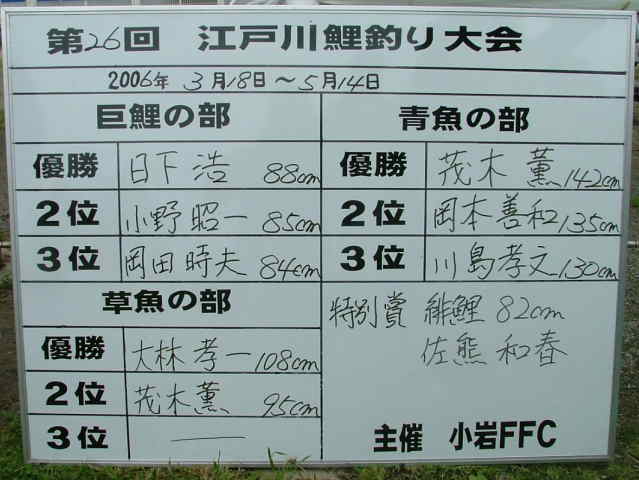 第26回 江戸川鯉釣り大会
2006年 3月18日～5月14日
巨鯉の部
優勝 日下 浩 88cm
2位 小野 昭一 85cm
3位 岡田 時夫 84cm
青魚の部
優勝 茂木 薫 142cm
2位 岡本善和 135cm
3位 川島孝文 130cm
草魚の部
優勝 大林 孝一 108cm
2位 茂木薫 95cm
3位 ―
特別賞 緋鯉 82cm
佐熊 和春
主催 小岩FFC